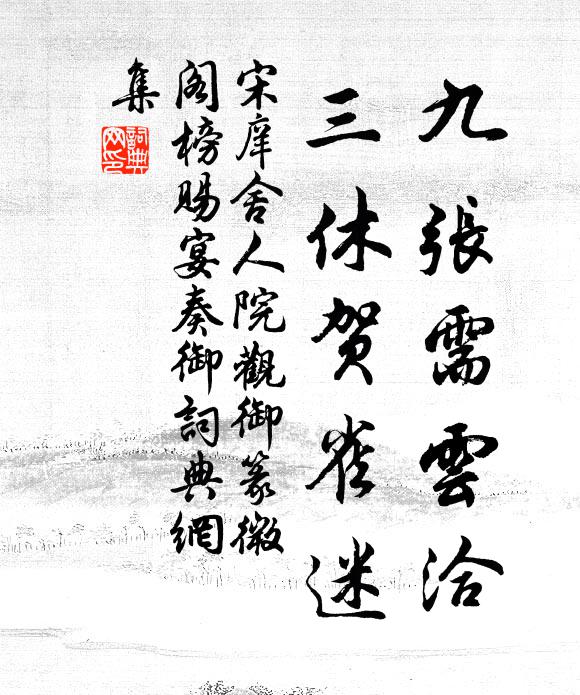 九張需雲洽
三休賀雀迷
宋庠舍人院觀御篆微
閣榜賜宴奏御詞典網
集
詞典網印